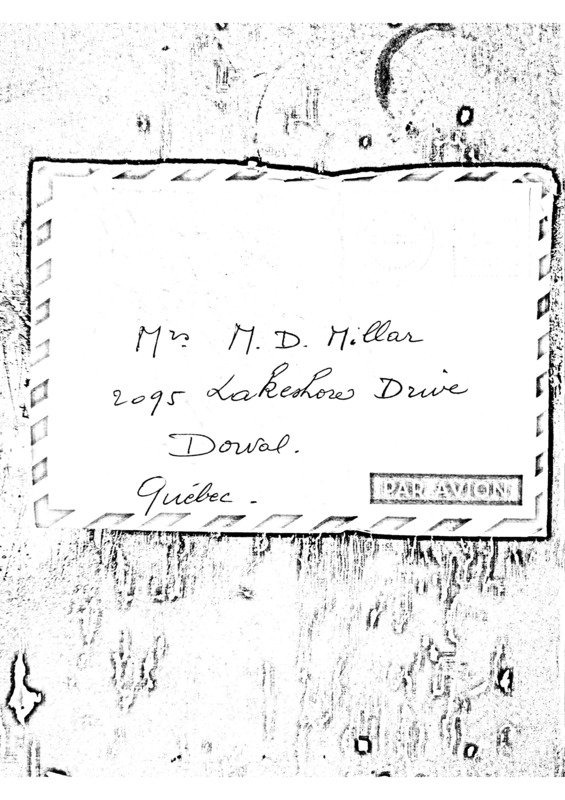 Mrs M. D. Millar
2095 Lakeshore Drive
Dorval.
Québec.
PAR AVION